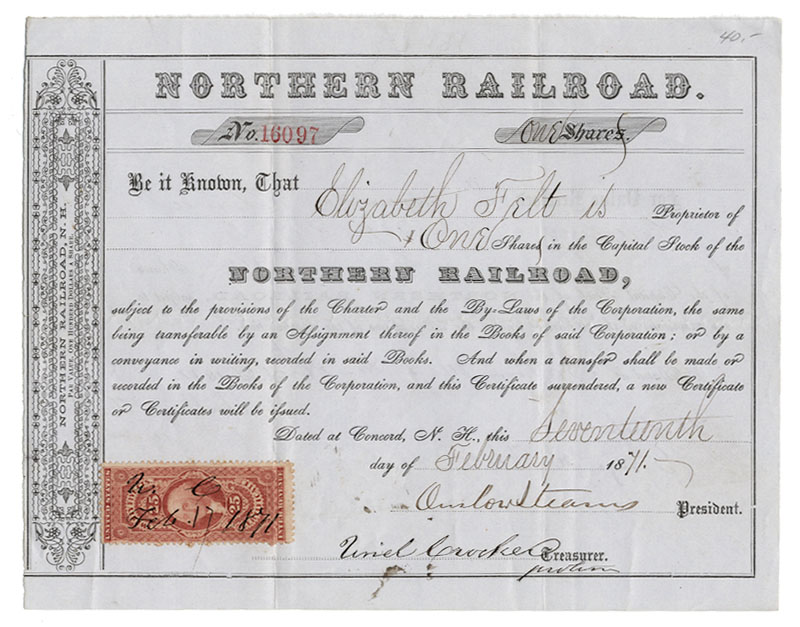 40.-
NORTHERN RAILROAD.
No. 16097
One Shares.
Be it Known, That
Elizabeth Felt is Proprietor of
One Shares in the Capital Stock of the
NORTHERN RAILROAD,
subject to the provisions of the Charter and the By-Laws of the Corporation, the same
being transferable by an Assignment thereof in the Books of said Corporation; or by a
conveyance in writing, recorded in said Books. And when a transfer shall be made or
recorded in the Books of the Corporation, and this Certificate surrendered, a new Certificate
or Certificates will be issued.
Dated at Concord, N. H., this Seventeenth
day of February 1871.
Onslow Stearns President.
Uriel Crocker Treasurer.
pro tem
NORTHERN RAILROAD, N. H.
PAR VALUE, ONE HUNDRED DOLLARS A SHARE.
U. C
25 25
Feb. 17 1871